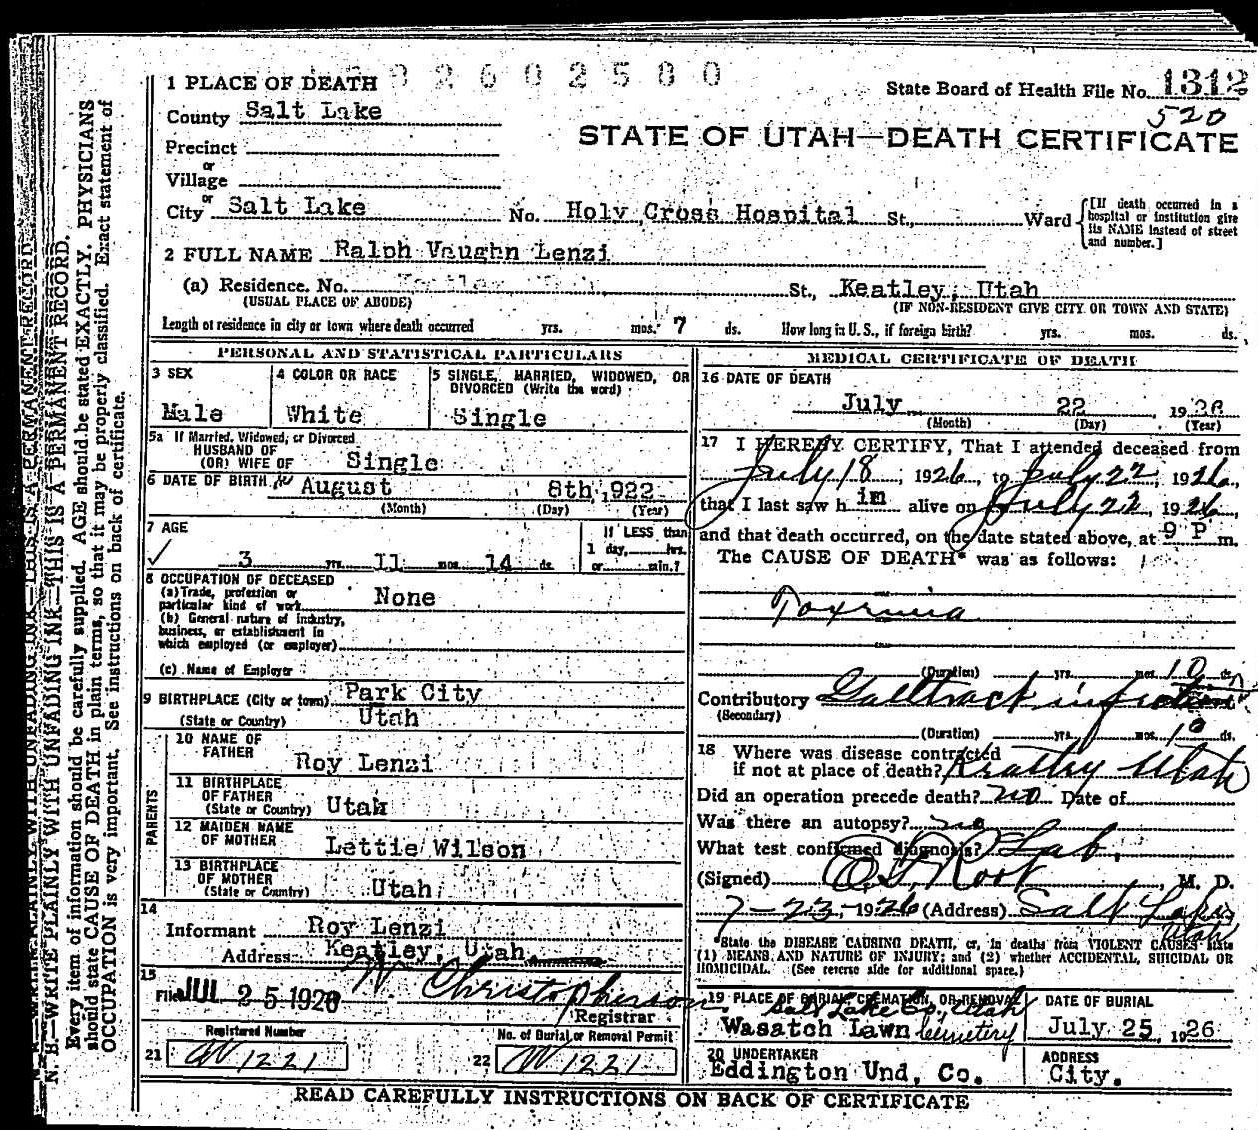 1 PLACE OF DEATH
State Board of Health File No. 1312
520
County Salt Lake
STATE OF UTAH—DEATH CERTIFICATE
Precinct
or
Village
or
City Salt Lake No. Holy Cross Hospital St., Ward {[If death occurred in a hospital or institution give its NAME instead of street and number.]
2 FULL NAME Ralph Vaughn Lenzi
(a) Residence. No. St., Keatley, Utah
(USUAL PLACE OF ABODE) (IF NON-RESIDENT GIVE CITY OR TOWN AND STATE)
Length of residence in city or town where death occurred yrs. mos. 7 ds. How long in U. S., if foreign birth? yrs. mos. ds.
PERSONAL AND STATISTICAL PARTICULARS
3 SEX
Male
4 COLOR OR RACE
White
5 SINGLE, MARRIED, WIDOWED, OR
DIVORCED (Write the word)
Single
5a If Married, Widowed, or Divorced
HUSBAND OF
(OR) WIFE OF Single
6 DATE OF BIRTH August 8th, 922
(Month) (Day) (Year)
7 AGE
3 yrs. 11 mos. 14 ds.
If LESS than
1 day, hrs.
or min.?
8 OCCUPATION OF DECEASED
(a) Trade, profession or
particular kind of work None
(b) General nature of Industry,
business, or establishment in
which employed (or employer)
(c) Name of Employer
9 BIRTHPLACE (City or town) Park City
(State or Country) Utah
PARENTS
10 NAME OF
FATHER Roy Lenzi
11 BIRTHPLACE
OF FATHER
(State or Country) Utah
12 MAIDEN NAME
OF MOTHER Lettie Wilson
13 BIRTHPLACE
OF MOTHER
(State or Country) Utah
14
Informant Roy Lenzi
Address Keatley, Utah
15
Filed JUL 25 1926 W. Christopherson
Registrar
Registered Number
21 W 1221
No. of Burial or Removal Permit
22 W 1221
MEDICAL CERTIFICATE OF DEATH
16 DATE OF DEATH
July 22, 1926
(Month) (Day) (Year)
17 I HEREBY CERTIFY, That I attended deceased from
July 18, 1926, to July 22, 1926,
that I last saw him alive on July 22, 1926,
and that death occurred, on the date stated above, at 9 P m.
The CAUSE OF DEATH* was as follows:
Toxemia
(Duration) yrs. mos. 10 ds.
Contributory
(Secondary)
(Duration) yrs. mos. 10 ds.
18 Where was disease contracted
if not at place of death? Keatley Utah
Did an operation precede death? no Date of
Was there an autopsy? no
What test confirmed diagnosis? Lab.
(Signed) M. D.
7-23-1926 (Address) Salt Lake
Utah
*State the DISEASE CAUSING DEATH, or, in deaths from VIOLENT CAUSES state
(1) MEANS AND NATURE OF INJURY; and (2) whether ACCIDENTAL, SUICIDAL OR
HOMICIDAL. (See reverse side for additional space.)
19 PLACE OF BURIAL, CREMATION, OR REMOVAL
Salt Lake Co., Utah
Wasatch Lawn Cemetery
DATE OF BURIAL
July 25, 1926
20 UNDERTAKER
Eddington Und. Co.
ADDRESS
City.
READ CAREFULLY INSTRUCTIONS ON BACK OF CERTIFICATE
N. B.—WRITE PLAINLY WITH UNFADING INK—THIS IS A PERMANENT RECORD.
Every item of information should be carefully supplied. AGE should be stated EXACTLY. PHYSICIANS
should state CAUSE OF DEATH in plain terms, so that it may be properly classified. Exact statement of
OCCUPATION is very important. See instructions on back of certificate.